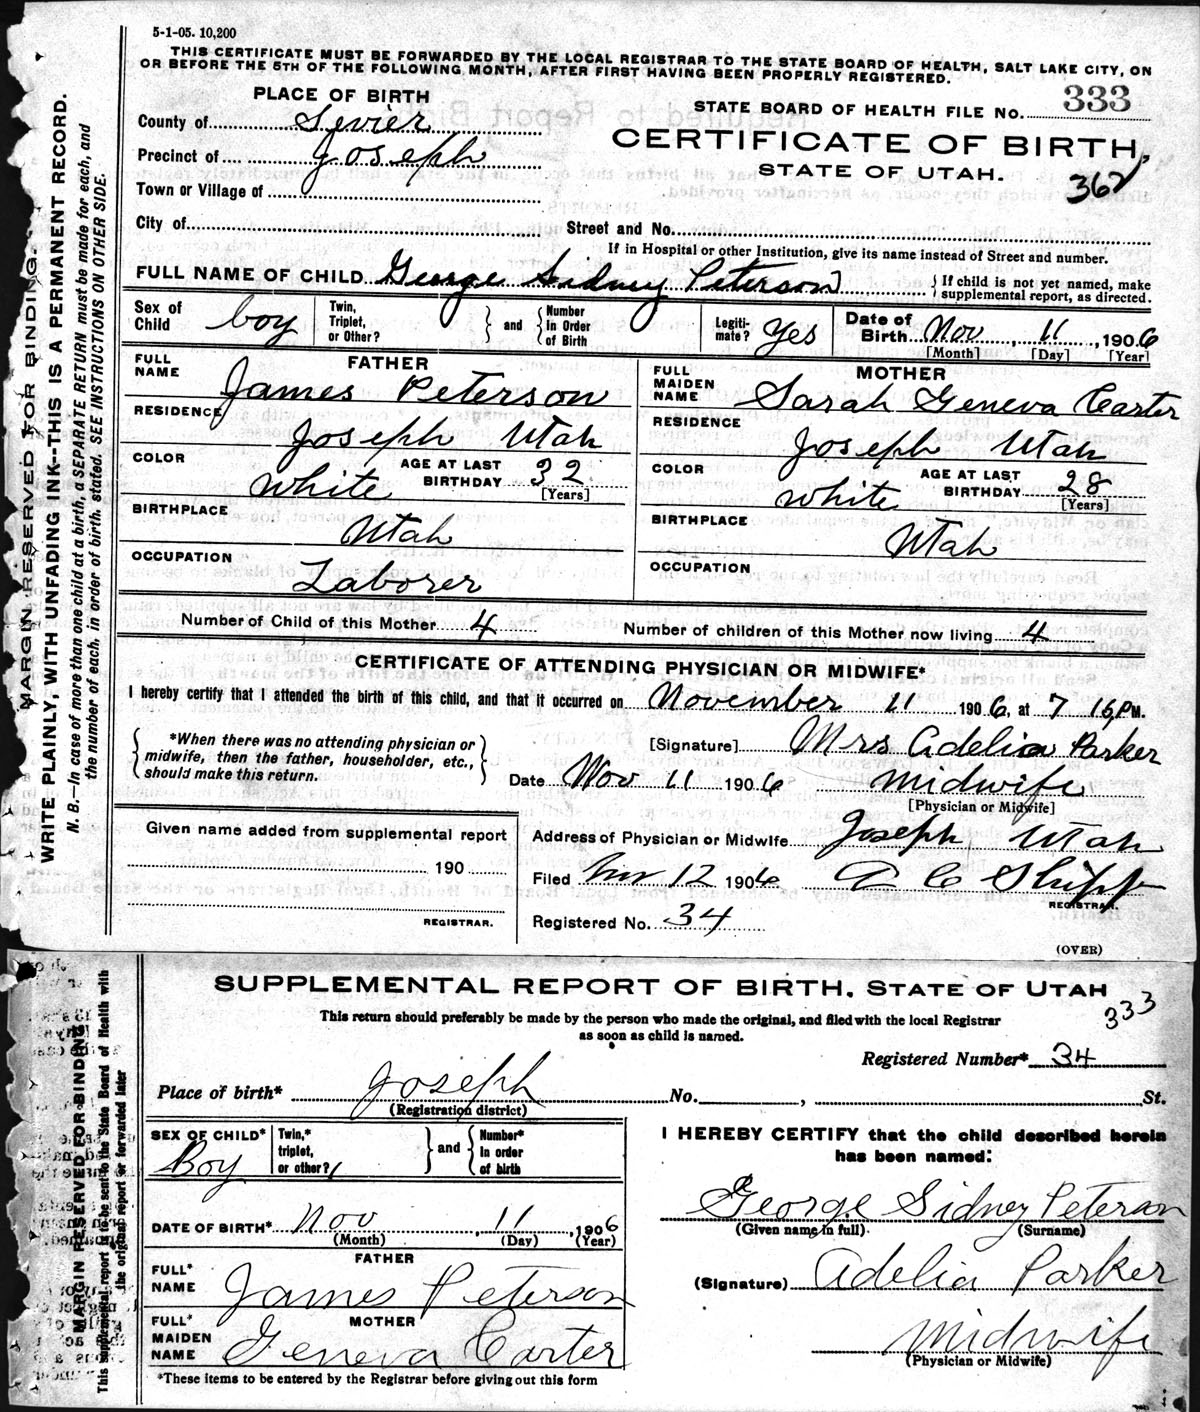 5-1-05. 10,200
THIS CERTIFICATE MUST BE FORWARDED BY THE LOCAL REGISTRAR TO THE STATE BOARD OF HEALTH, SALT LAKE CITY, ON
OR BEFORE THE 5TH OF THE FOLLOWING MONTH, AFTER FIRST HAVING BEEN PROPERLY REGISTERED.
PLACE OF BIRTH
STATE BOARD OF HEALTH FILE NO. 333
County of Sevier
CERTIFICATE OF BIRTH,
Precinct of Joseph
STATE OF UTAH.
362
Town or Village of
City of Street and No.
If in Hospital or other Institution, give its name instead of Street and number.
FULL NAME OF CHILD George Sidney Peterson } If child is not yet named, make supplemental report, as directed.
Sex of Child boy Twin, Triplet, or Other? } and { Number In Order of Birth Legiti-mate? Yes Date of Birth Nov 11, 1906
[Month] [Day] [Year]
FATHER
FULL NAME James Peterson
RESIDENCE Joseph Utah
COLOR White AGE AT LAST BIRTHDAY 32 [Years]
BIRTHPLACE Utah
OCCUPATION Laborer
MOTHER
FULL MAIDEN NAME Sarah Geneva Carter
RESIDENCE Joseph Utah
COLOR White AGE AT LAST BIRTHDAY 28 [Years]
BIRTHPLACE Utah
OCCUPATION
Number of Child of this Mother 4 Number of children of this Mother now living 4
CERTIFICATE OF ATTENDING PHYSICIAN OR MIDWIFE*
I hereby certify that I attended the birth of this child, and that it occurred on November 11 1906, at 7 15, P M.
{ *When there was no attending physician or midwife, then the father, householder, etc., should make this return. }
[Signature] Mrs Adelia Parker
Date Nov 11 1906 Midwife
[Physician or Midwife]
Given name added from supplemental report
190
REGISTRAR.
Address of Physician or Midwife Joseph Utah
Filed Nov 12 1906 A C Shipp
REGISTRAR.
Registered No. 34
(OVER)
MARGIN RESERVED FOR BINDING.
WRITE PLAINLY, WITH UNFADING INK--THIS IS A PERMANENT RECORD.
N. B.—In case of more than one child at a birth, a SEPARATE RETURN must be made for each, and
the number of each, in order of birth, stated. SEE INSTRUCTIONS ON OTHER SIDE.
SUPPLEMENTAL REPORT OF BIRTH, STATE OF UTAH
333
This return should preferably be made by the person who made the original, and filed with the local Registrar
as soon as child is named.
Registered Number* 34
Place of birth* Joseph No. , St.
(Registration district)
SEX OF CHILD* Boy Twin,* triplet, or other? 1 } and { Number* In order of birth
DATE OF BIRTH* Nov 11, 1906
(Month) (Day) (Year)
FATHER
FULL* NAME James Peterson
MOTHER
FULL* MAIDEN NAME Geneva Carter
*These items to be entered by the Registrar before giving out this form
I HEREBY CERTIFY that the child described herein
has been named:
George Sidney Peterson
(Given name in full) (Surname)
(Signature) Adelia Parker
Midwife
(Physician or Midwife)
MARGIN RESERVED FOR BINDING
This supplemental report to be sent to the State Board of Health with
the original report or forwarded later